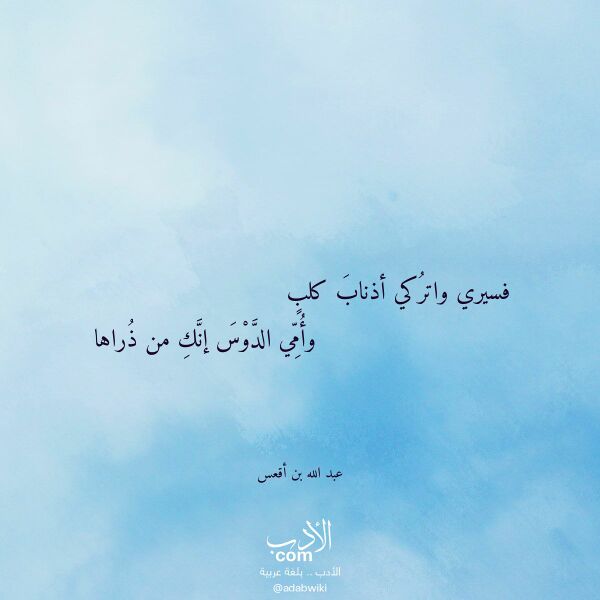 فسيري واترُكي أذنابَ كلبٍ
وأُمِّي الدَّوْسَ إنَّكِ من ذُراها
عبد الله بن أقعس
الأدب
com
الأدب .. بلغة عربية
@adabwiki